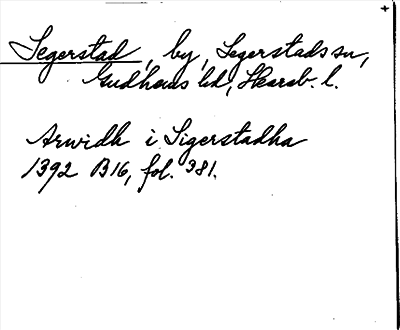 Segerstad, by, Segerstads sn,
Gudhems hd, Skarab. l.
Arwidh i Sigerstadha
1392 B16, fol. 381.